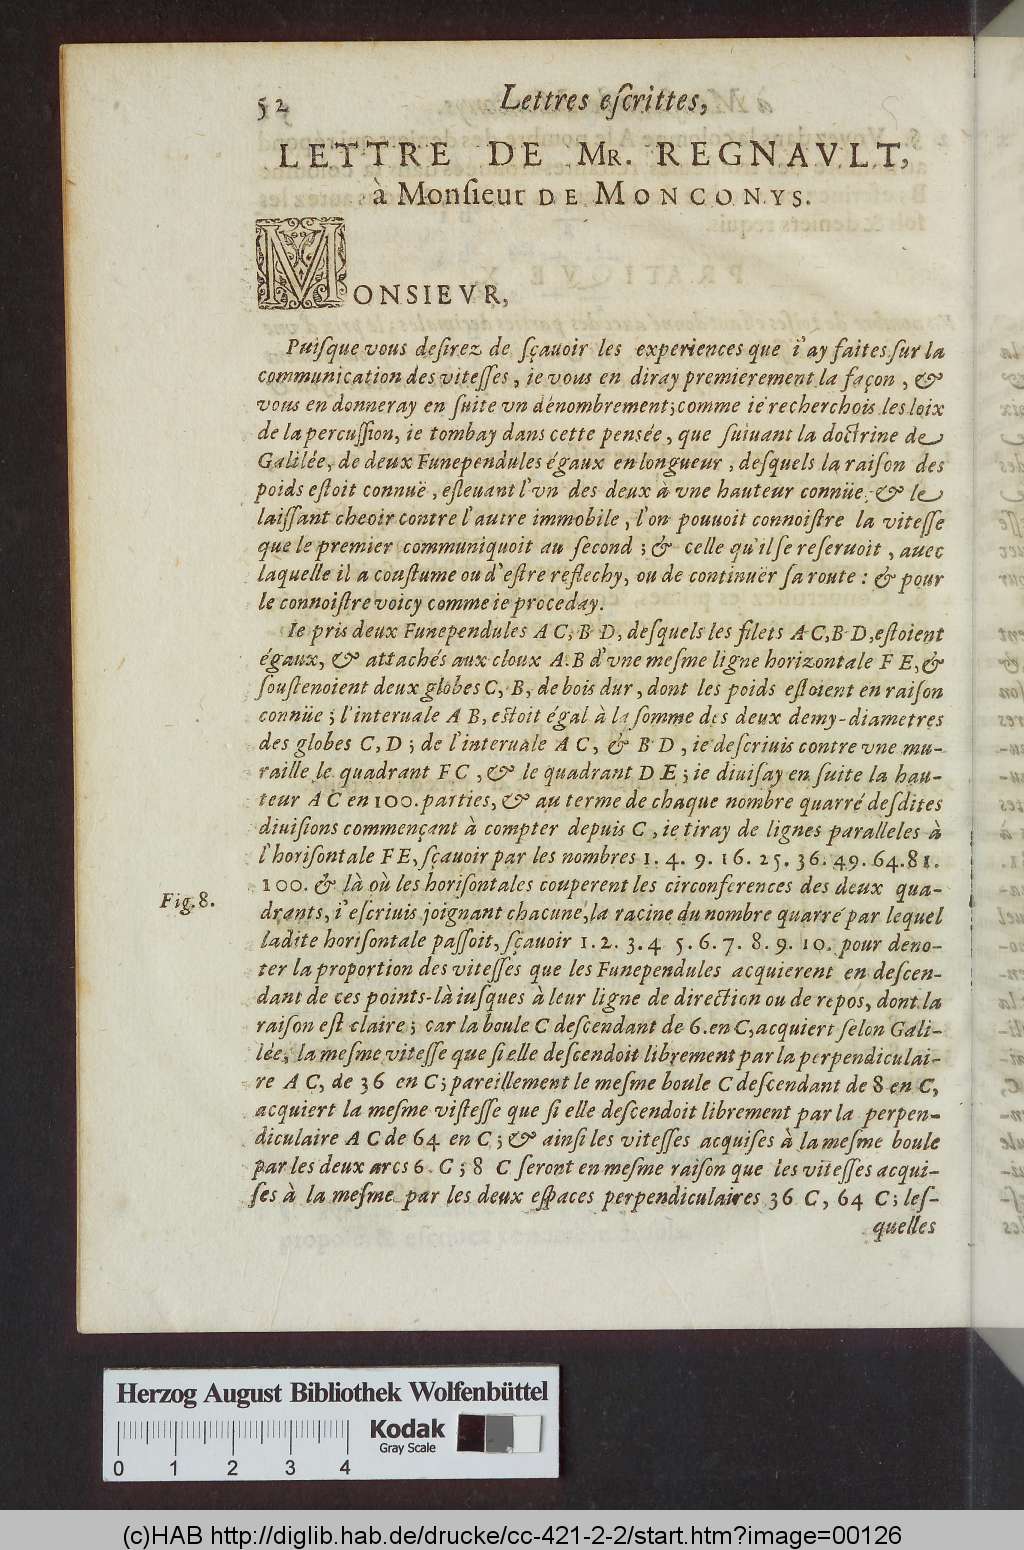 52 Lettres eſcrittes,
LETTRE DE MR. REGNAVLT,
à Monſieur DE MONCONYS.
MONSIEVR,
Puiſque vous deſirez de ſçauoir les experiences que i'ay faites ſur la
communication des viteſſes, ie vous en diray premierement la façon, &
vous en donneray en ſuite vn dénombrement; comme ie recherchois les loix
de la percuſſion, ie tombay dans cette pensée, que ſuiuant la doctrine de
Galilée, de deux Funependules égaux en longueur, deſquels la raiſon des
poids eſtoit connuë, eſleuant l'vn des deux à vne hauteur connüe, & le
laiſſant cheoir contre l'autre immobile, l'on pouuoit connoiſtre la viteſſe
que le premier communiquoit au ſecond; & celle qu'il ſe reſeruoit, auec
laquelle il a couſtume ou d'eſtre reflechy, ou de continuër ſa route: & pour
le connoiſtre voicy comme ie proceday.
Ie pris deux Funependules A C, B D, deſquels les filets A C, B D, eſtoient
égaux, & attachés aux cloux A. B d'vne meſme ligne horizontale F E, &
ſouſtenoient deux globes C, B, de bois dur, dont les poids eſtoient en raiſon
connüe; l'interuale A B, eſtoit égal à la ſomme des deux demy-diametres
des globes C, D; de l'interuale A C, & B D, ie deſcriuis contre vne mu-
raille le quadrant F C, & le quadrant D E; ie diuiſay en ſuite la hau-
teur A C en 100. parties, & au terme de chaque nombre quarré deſdites
diuiſions commençant à compter depuis C, ie tiray de lignes paralleles à
l'horiſontale F E, ſçauoir par les nombres 1. 4. 9. 16. 25. 36. 49. 64. 81.
100. & là où les horiſontales couperent les circonferences des deux qua-
Fig. 8.
drants, i'eſcriuis joignant chacune, la racine du nombre quarré par lequel
ladite horiſontale paſſoit, ſçauoir 1. 2. 3. 4 5. 6. 7. 8. 9. 10. pour deno-
ter la proportion des viteſſes que les Funependules acquierent en deſcen-
dant de ces points-là iuſques à leur ligne de direction ou de repos, dont la
raiſon eſt claire; car la boule C deſcendant de 6. en C, acquiert ſelon Gali-
lée, la meſme viteſſe que ſi elle deſcendoit librement par la perpendiculai-
re A C, de 36 en C; pareillement le meſme boule C deſcendant de 8 en C,
acquiert la meſme viſteſſe que ſi elle deſcendoit librement par la perpen-
diculaire A C de 64 en C; & ainſi les viteſſes acquiſes à la meſme boule
par les deux arcs 6. C; 8 C ſeront en meſme raiſon que les viteſſes acqui-
ſes à la meſme par les deux eſpaces perpendiculaires 36 C, 64 C; leſ-
quelles
Herzog August Bibliothek Wolfenbüttel
Kodak
Gray Scale
0 1 2 3 4
(c)HAB http://diglib.hab.de/drucke/cc-421-2-2/start.htm?image=00126